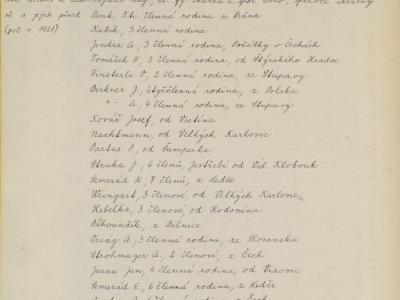 a jejich původ Benk, 5ti členná rodina z Brna
(poč. r. 1921) Kubík, 3 členná rodina
Jendra A, 3 členná rodina, Počátky v Čechách
Tomášek F, 3 členná rodina, od Stýrského Hradce
Finsterle V, 2 členná rodina, ze Stupavy
Birkner J, čtyřčlenná rodina, z Polska
-"- A, 4 členná rodina, ze Stupavy
Kovář Josef, od Vsetína
Nachtmann, od Velkých Karlovic
Partus P, od Šumperka
Struka J, 6 členů, Jestřebí od Val Klobouk
Semerád K, 7 členů, z Ledče
Weingart, 3 členové, od Velkých Karlovic
Hebelka, 3 členové, od Hodonína
Běhounčík, z Bílnice
Orság A, 3 členná rodina, ze Slovenska
Strohmayer A, 2 členové, z Čech
Juran Jan, 4 členná rodina, od Vizovic
Semerád E, 6 členná rodina, z Ledče